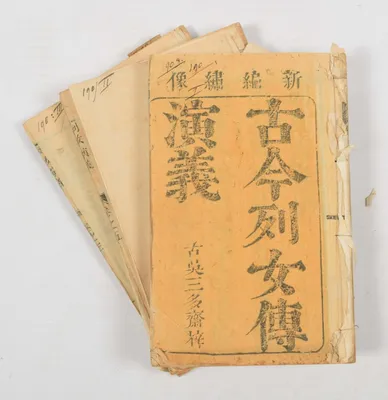 新編繡像
古今列女傳
演義
古吳三多齋梓